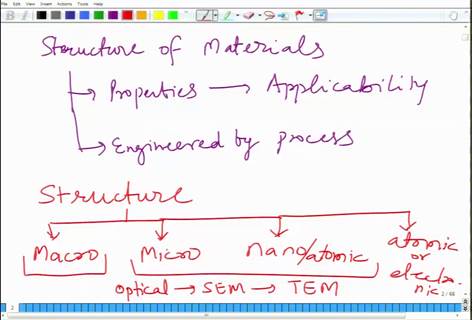 File Edit View Insert Actions Tools Help
Structure of Materials
→ Properties → Applicability
→ Engineered by process
Structure
Macro Micro nano/atomic atomic or electronic
optical → SEM → TEM
2 2 / 68